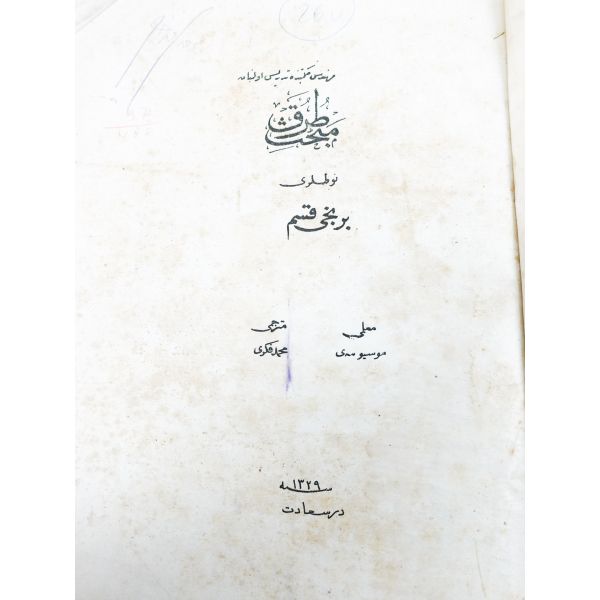 مهندس مكتبنده تدريس اولنان
مبحث طرق
نوطه‌لرى
برنجى قسم
معلمى
موسيو مدى
مترجمى
محمد فكرى
سنه ١٣٢٩
درسعادت